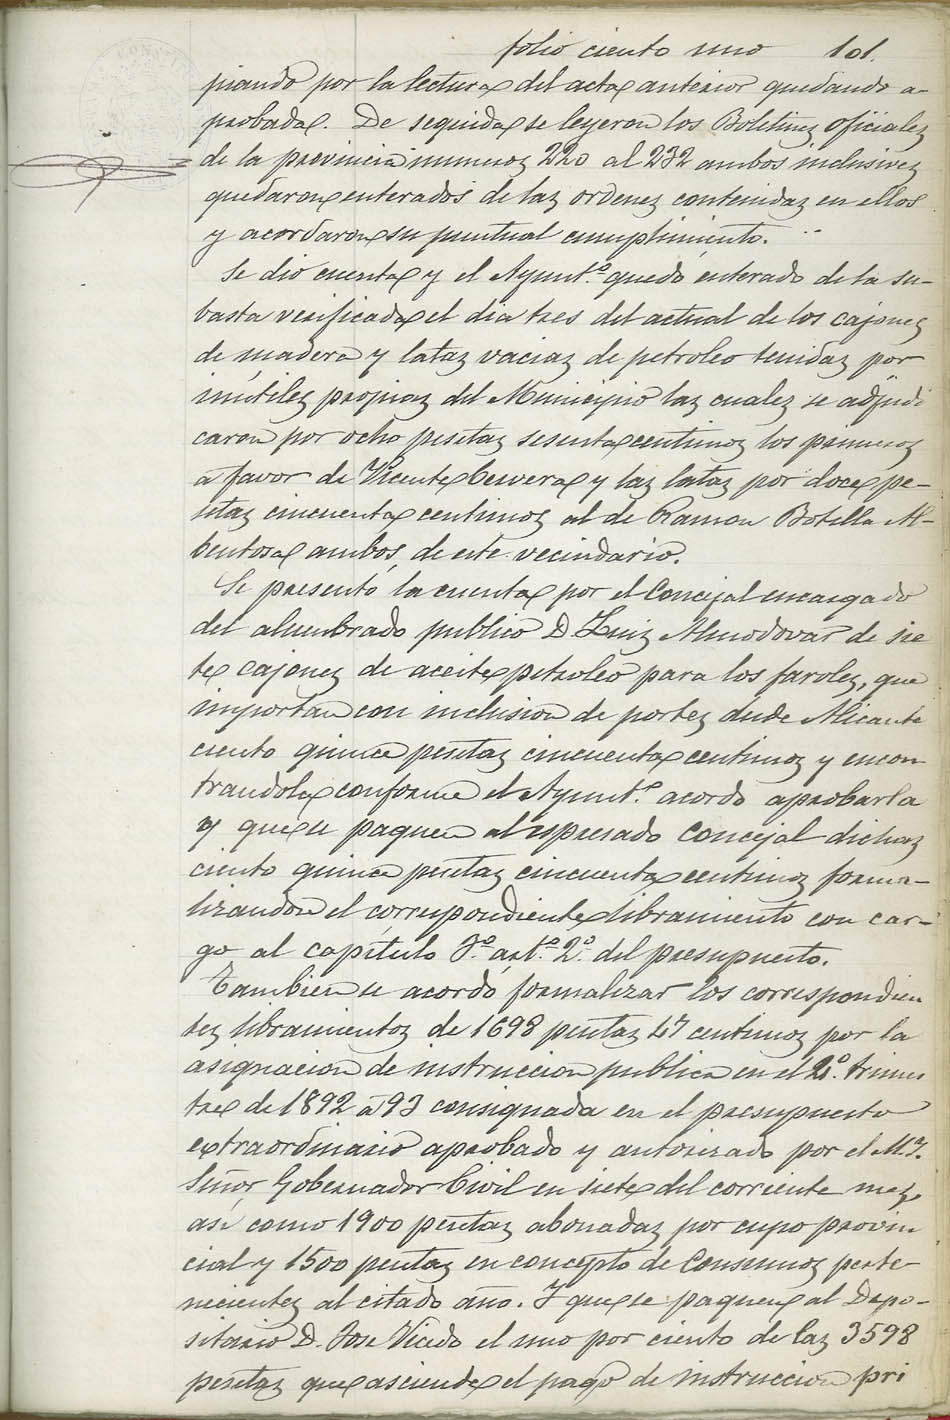 folio ciento uno 101.
piando por la lectura del acta anterior quedando a-
probada. De seguida se leyeron los Boletines oficiales
de la provincia numeros 220 al 232 ambos inclusives
quedaron enterados de las ordenes contenidas en ellos
y acordaron su puntual cumplimiento.
Se dio cuenta y el Ayunt.º quedó enterado de la su-
basta verificada el dia tres del actual de los cajones
de madera y latas vacias de petroleo tenidas por
inútiles propias del Municipio las cuales se adjudi
caron por ocho pesetas sesenta centimos los primeros
a favor de Vicente Cervera y las latas por doce pe-
setas cincuenta centimos al de Ramon Botella Al-
bentosa ambos de este vecindario.
Se presentó la cuenta por el Concejal encargado
del alumbrado publico D Luis Almodovar de sie
te cajones de aceite petroleo para los faroles, que
importan con inclusion de portes desde Alicante
ciento quince pesetas cincuenta centimos y encon
trandola conforme el Ayunt.º acordó aprobarla
y que se paguen al espresado Concejal dichas
ciento quince pesetas cincuenta centimos forma-
lizandose el correspondiente libramiento con car-
go al capítulo 3º art.º 2º del presupuesto.
Tambien se acordó formalizar los correspondien
tes libramientos de 1698 pesetas 47 centimos por la
asignacion de instruccion publica en el 2º. trimes
tre de 1892 á 93 consignada en el presupuesto
extraordinario aprobado y autorizado por el M.I.
Señor Gobernador Civil en siete del corriente mes,
asi como 1900 pesetas abonadas por cupo provin
cial y 1500 pesetas en concepto de Consumos perte-
necientes al citado año. Y que se paguen al Depo-
sitario D. Jose Vicedo el uno por ciento de las 3598
pesetas que asciende el pago de instruccion pri